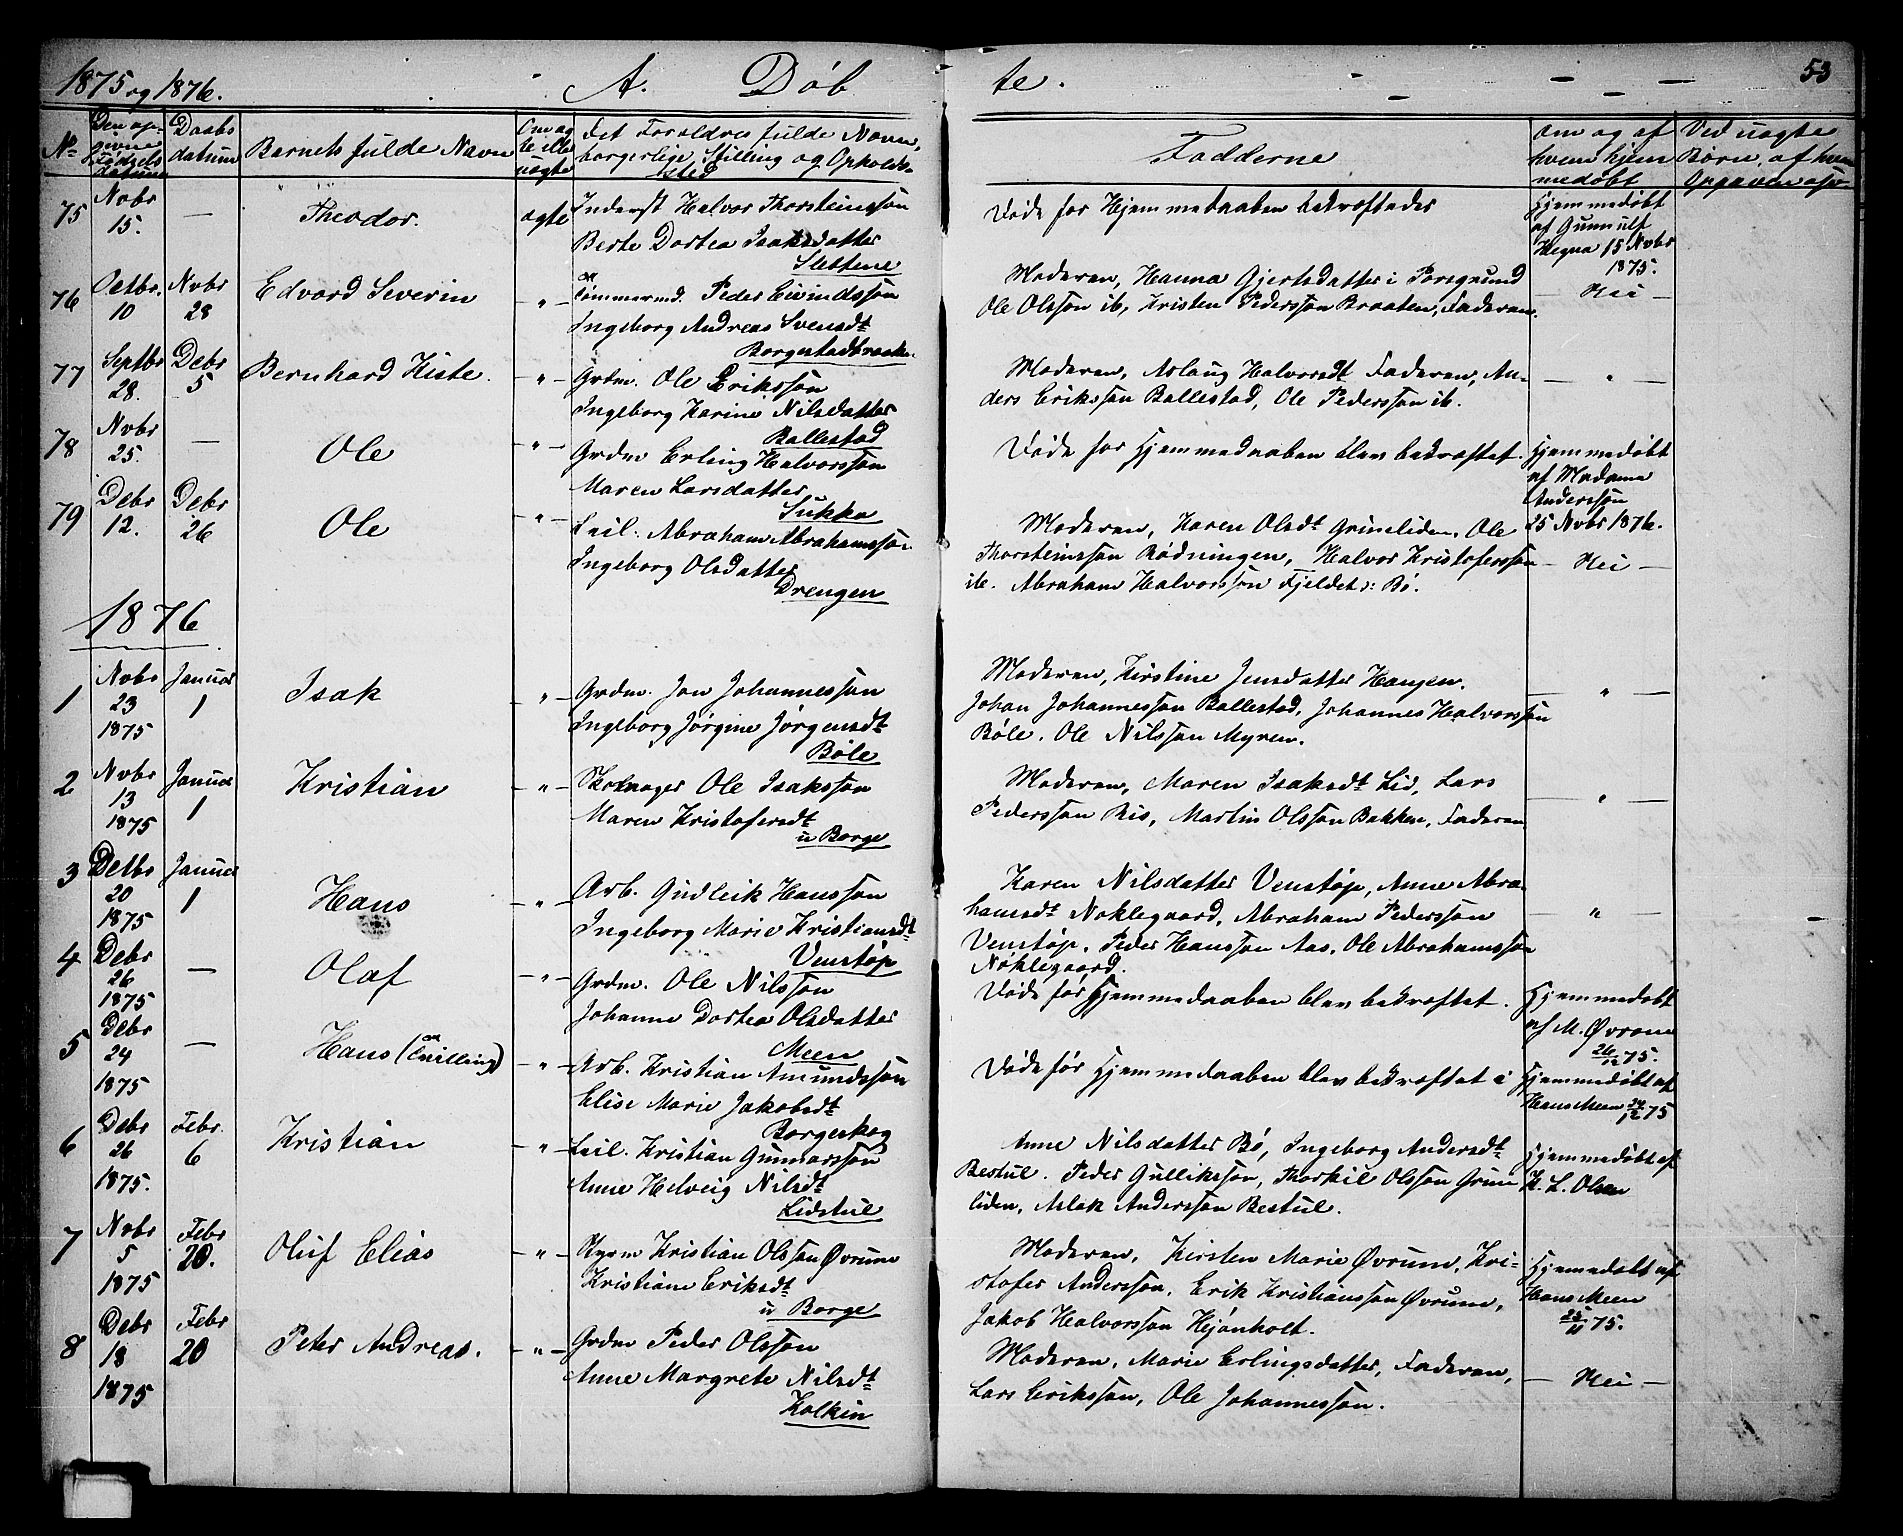 1875 og 1876.
A. Døb
te.
53
No
Den op-
givne
Fødsels
datum
Daabs
datum
Barnets fulde Navn
Om æg
te eller
uægte
Det Forældres fulde Navn,
borgerlige Stilling og Opholds-
sted
Fadderne
Om og af
hvem hjem
medøbt
Ved uægte
Børn, af hvem
Opgaven osv
75
Novbr
15.
—
Theodor.
ægte
Inderst Halvor Thorsteinssøn
Berte Dortea Isaksdatter
Slettene
Døde før Hjemmedaaben bekræftedes
Hjemmedøbt
af Gunnulf
Hegna 15 Novbr
1875.
76
Octbr.
10
Nvbr
28
Edvard Severin
"
Tømmermd. Peder Eivindssøn
Ingeborg Andreas Svensdt
Borgestadbraaten
Moderen, Hanna Gjertsdatter i Porsgrund
Ole Olssøn ib, Kristen Pederssøn Braaten, Faderen.
— Nei —
77
Septbr
28.
Debr
5
Bernhard Kiste.
"
Grdm. Ole Erikssøn
Ingeborg Karine Nilsdatter
Ballestad
Moderen, Aslaug Halvorsdt Faderen, An-
ders Erikssøn Ballestad, Ole Pederssøn ib.
— " —
78
Nvbr
25.
—
Ole
"
Grdm Erling Halvorssøn
Maren Larsdatter
Sukka
Døde før Hjemmedaaben blev bekræftet.
Hjemmedøbt
af Madame
Anderssøn
25 Nvbr 1876.
79
Debr
12.
Debr
26
Ole
"
Leil. Abraham Abrahamssøn
Ingeborg Olsdatter
Drengen
Moderen, Karen Olsdt Griniliden, Ole
Thorsteinssøn Rødningen, Halvor Kristoferssøn
ib. Abraham Halvorssøn Fjeldet i Bø.
— Nei —
1876
1
Nvbr
23
1875
Januar
1
Isak
"
Grdm. Jon Johannessøn
Ingeborg Jørgine Jørgensdt
Bøle
Moderen, Kirstine Jensdatter Haugen.
Johan Johannessøn Ballestad, Johannes Halvorssøn
Bøle. Ole Nilssøn Myren.
— " —
2
Nvbr
13
1875
Januar
1
Kristian
"
Skomager Ole Isakssøn
Maren Kristofersdt
u Borge
Moderen, Maren Isaksdt Lid, Lars
Pederssøn Ris, Martin Olssøn Bakken, Faderen
— " —
3
Detbr
20
1875
Januar
1
Hans
"
Arb. Gudleik Hanssøn
Ingeborg Marie Kristiansdt
Venstøp
Karen Nilsdatter Venstøp, Anne Abra-
hamsdt Noklegaard, Abraham Pederssøn
Venstøp, Peder Hanssøn Aas, Ole Abrahamssøn
Nøklegaard.
— " —
4
Debr
26
1875
—
Olaf
"
Grdm. Ole Nilssøn
Johanne Dortea Olsdatter
Meen
Døde før Hjemmedaaben blev bekræftet.
Hjemmedøbt
af M. Øvrom
26/12 75.
5
Debr
24
1875
—
Hans (Tvilling)
"
Arb. Kristian Amundssøn
Elise Marie Jakobsdt
Borgeskog
Døde før Hjemmedaaben blev bekræftet i
Hjemmedøbt af
Hans Meen 24/12 75
6
Debr
26
1875.
Febr.
6
Kristian
"
Leil. Kristian Gunnarssøn
Anne Helvig Nilsdt
Lidstul
Anne Nilsdatter Bø, Ingeborg Andersdt
Bestul. Peder Gullikssøn, Thorkil Olssøn Grini
liden, Aslak Anderssøn Bestul.
Hjemmedøbt af
K. L. Olsen
7
Nvbr
5
1875
Febr
20.
Oluf Elias
"
Styrm Kristian Olssøn Øvrum
Kristiane Eriksdt
u Borge
Moderen, Kirsten Marie Øvrum, Kri-
stofer Anderssøn, Erik Kristianssøn Øvrum,
Jakob Halvorssøn Hjønholt.
Hjemmedøbt af
Hans Meen
25/11 75.
8
Debr
18
1875
Febr
20
Peter Andreas.
"
Grdm Peder Olssøn
Anne Margrete Nilsdt
Kolkin
Moderen, Marie Erlingsdatter, Faderen,
Lars Erikssøn, Ole Johannessøn.
— Nei —